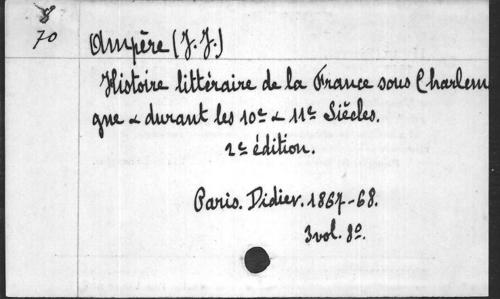 8
70
Ampère (J. J.)
Histoire littéraire de la France sous Charlem
gne & durant les 10e & 11e Siècles.
2e édition.
Paris. Didier. 1867-68.
3 vol. 8o.